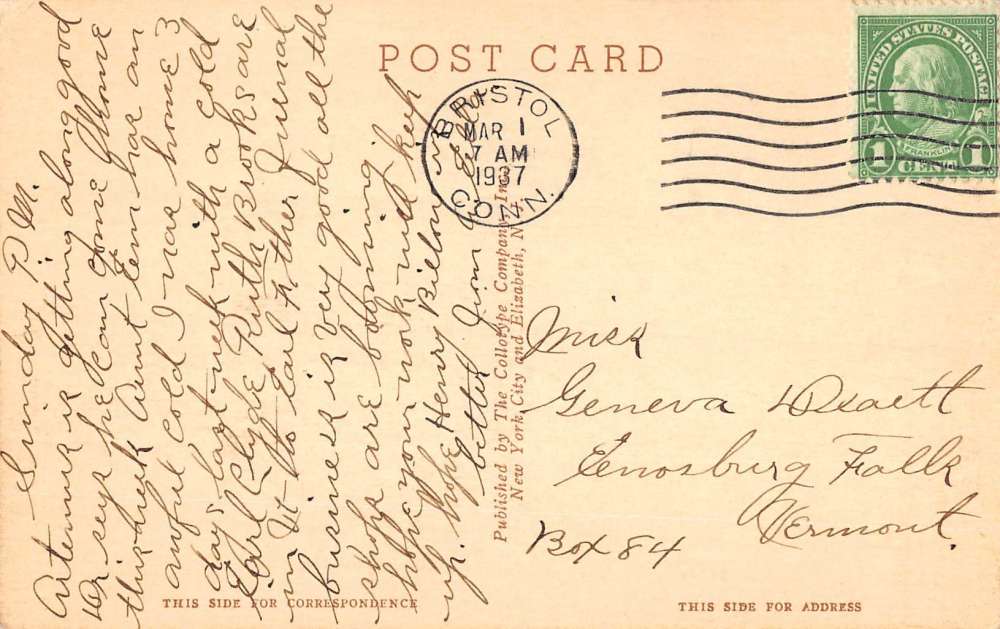 POST CARD
UNITED STATES POSTAGE
FRANKLIN
1 CENT 1
BRISTOL
MAR 1
7 AM
1937
CONN.
Sunday P. M.
Artemus is getting along good
Dr says he can come Home
this week Aunt Em has an
awful cold I was home 3
days last week with a cold
Earl Clyde Ruth Brooks are
in Vt to Earl Father Funeral
business is very good all the
shops are booming
hope your work will keep
up. hope Henry Billow is
better from
Published by The Collotype Company, Inc.
New York City and Elizabeth, N. J.
Miss
Geneva
Enosburg Falls
Vermont.
Box 84
THIS SIDE FOR CORRESPONDENCE
THIS SIDE FOR ADDRESS